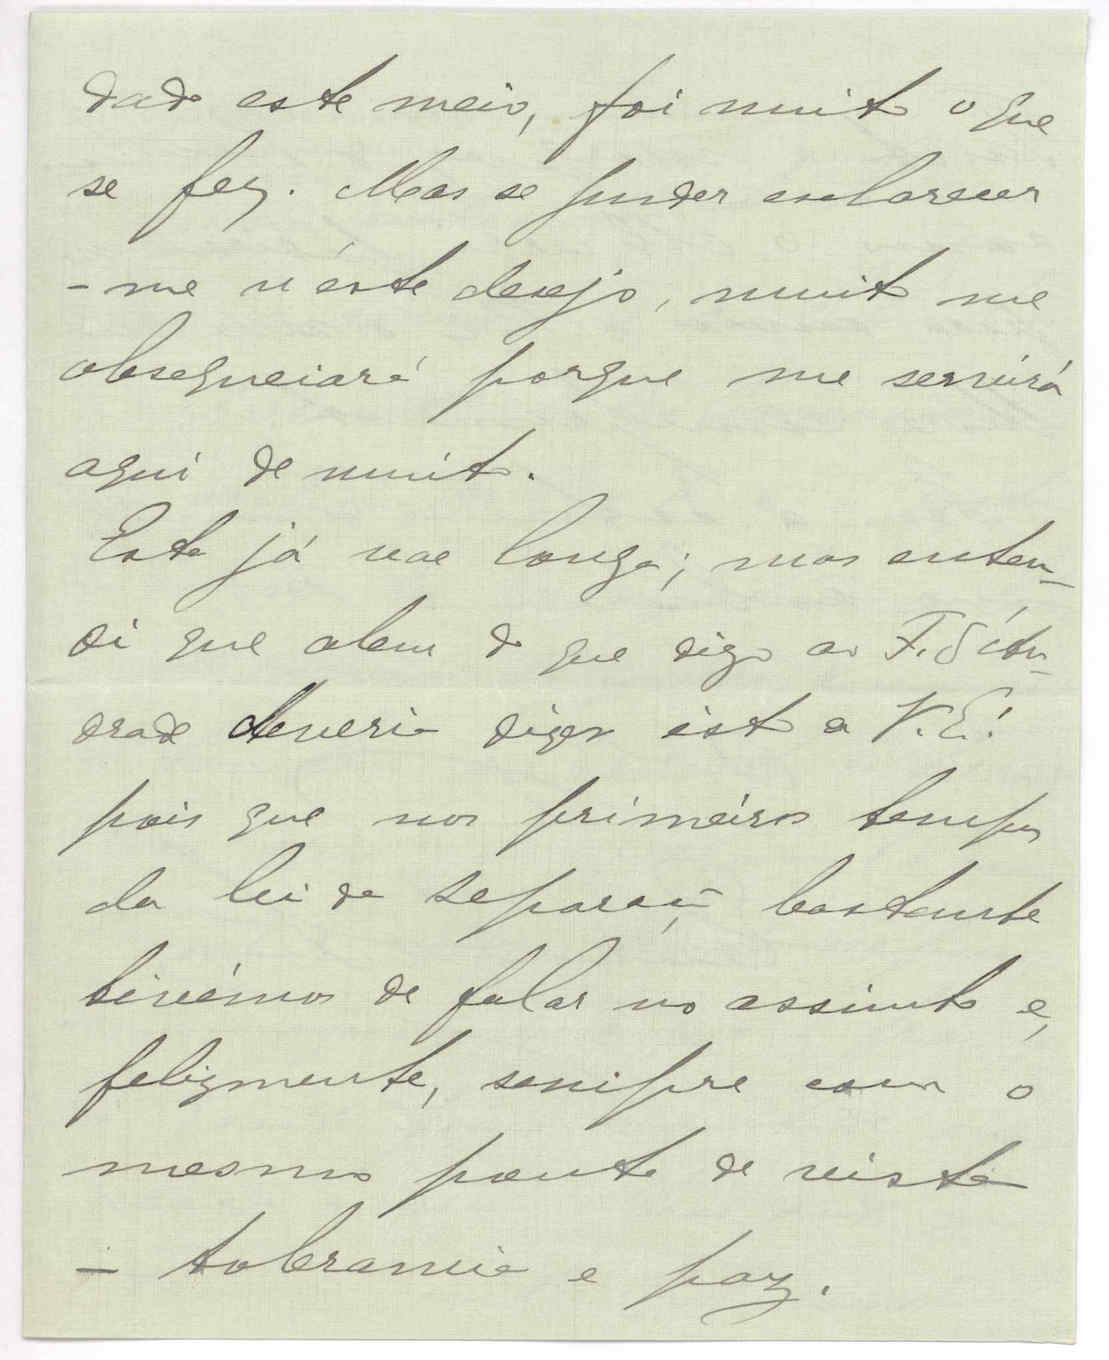 dado este meio, foi muito o que
se fez. Mas se puder esclarecer
-me n'éste desejo, muito me
obsequeiará porque me servirá
aqui de muito.
Esta já vae longa; mas enten-
di que alem do que digo ao F.
deveria dizer isto a V. E.ª
pois que nos primeiros tempos
da lei da separação bastante
tivémos de falar no assunto e,
felizmente, sempre com o
mesmo ponto de vista
— tolerancia e paz.